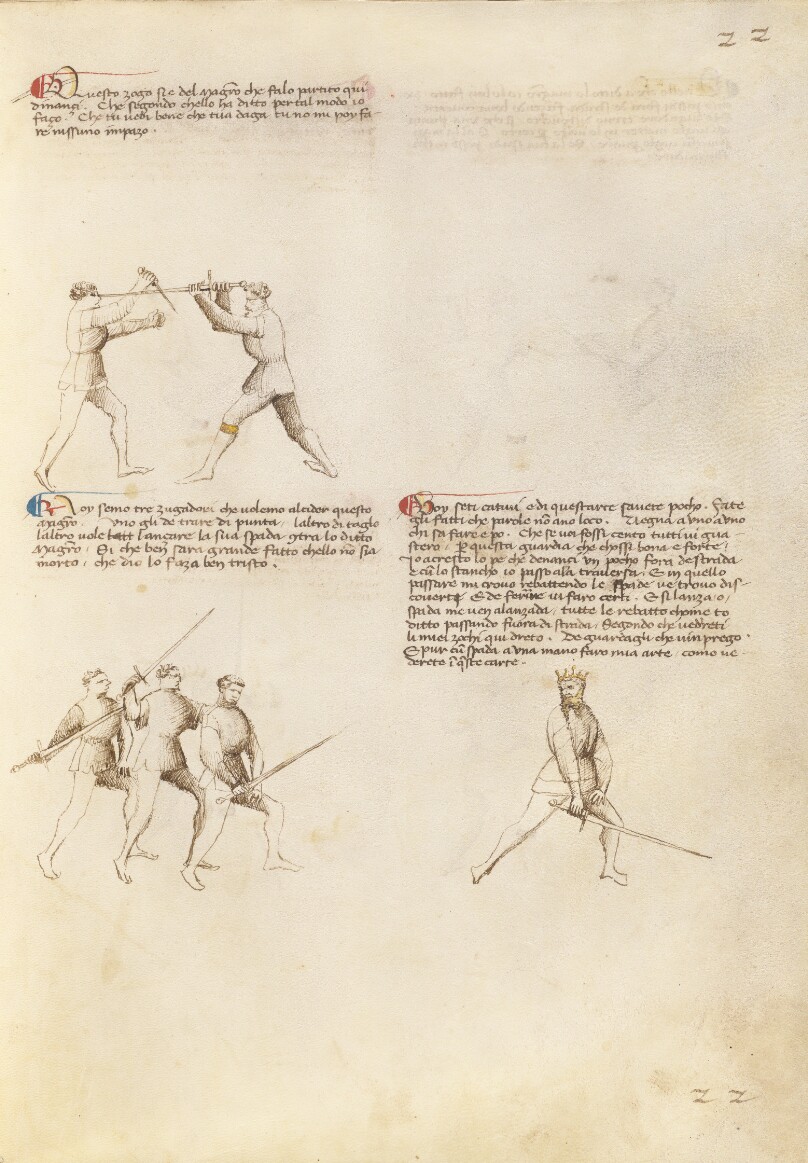 22
Questo zogo si e del magro che fa lo partito qui
dinanci. Che segondo chello ha ditto per tal modo io
faço. Che tu vedi bene che tua daga tu no mi poy fa
re nissuno impazo.
Noy semo tre zugadori che volemo alcider questo
magro. Uno gli de trare di punta, laltro di taglo
laltro vole lançare la sua spada contra lo ditto
magro. Si che ben sara grande fatto chello no sia
morto, che dio lo faza ben tristo.
Voy seti cativi e di questarte savete pocho. Fate
gli fatti che parole no ano loco. Vegna a uno a uno
chi sa fare e po. Che se voi fossi cento tutti vi gua
stero, per questa guardia che chossi bona e forte.
Io acresto lo pe che denanci un pocho fora de strada
e cum lo stancho io passo ala traversa. E in quello
passare mi crovo rebattendo le spade ve trovo dis
coverti. E de ferire vi faro certi. E si lanza o
spada me ven alanzada, tutte le rebatto chome to
ditto passando fuora di strada, segondo che vedreti
li miei zochi qui dreto. De guardagli che vin prego.
E pur cum spada a una mano faro mia arte, come ve
derete in queste carte.
22